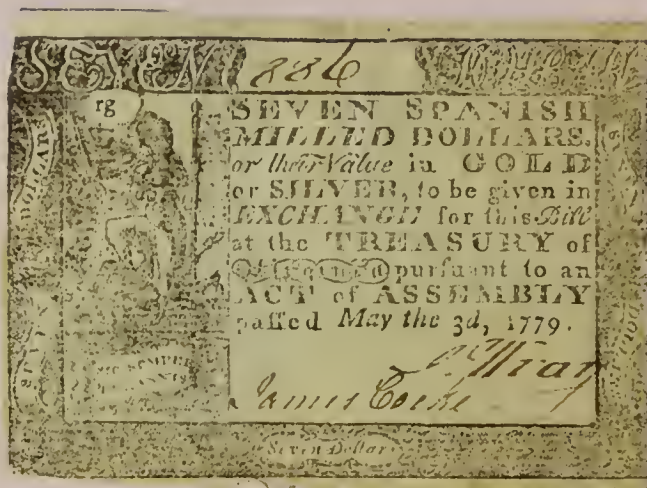 SEVEN 886
rg
DOLLARS
SEVEN SPANISH
MILLED DOLLARS,
or their Value in GOLD
or SILVER, to be given in
EXCHANGE for this Bill
at the TREASURY of
purſuant to an
ACT of ASSEMBLY
paſſed May the 3d, 1779.
SIC SEMPER
James Cocke
Seven Dollars